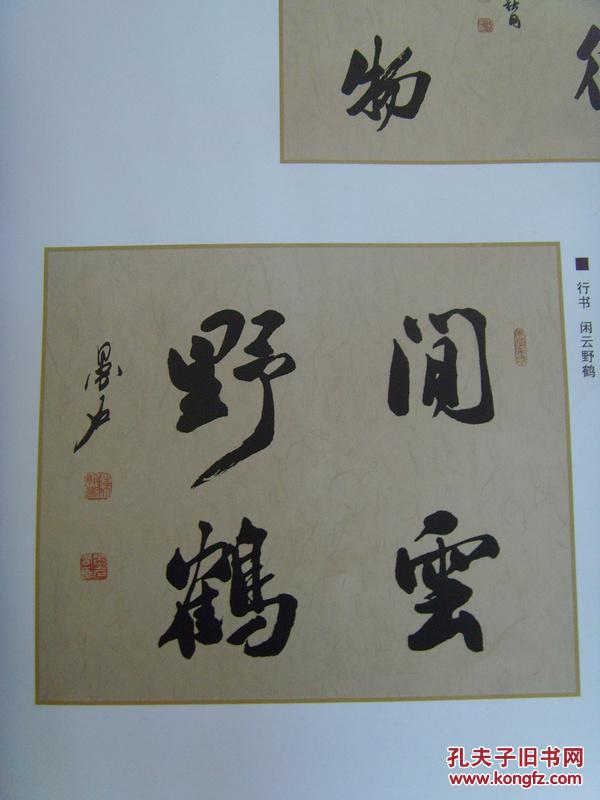 物
行书 闲云野鹤
閒雲
野鶴
孔夫子旧书网
www.kongfz.com